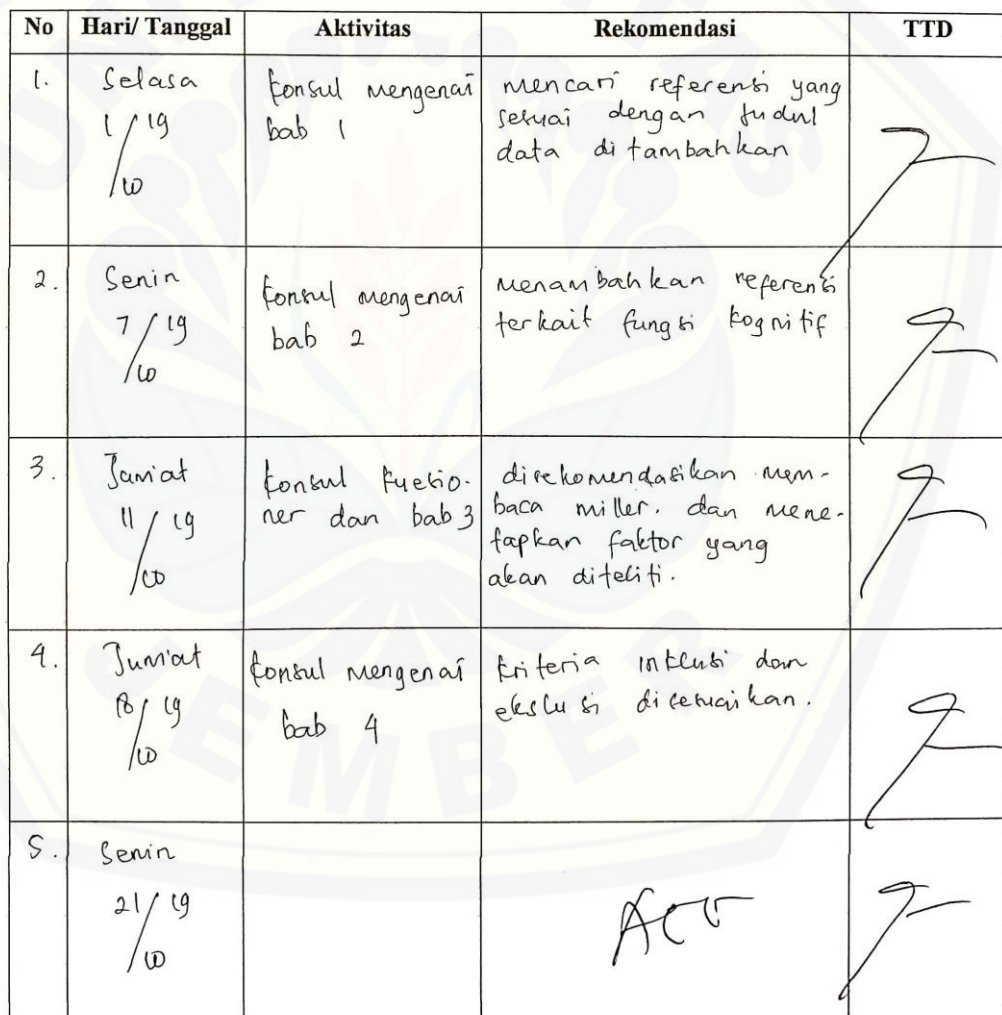 No Hari/ Tanggal Aktivitas Rekomendasi TTD
1. Selasa
1/19
/10
konsul mengenai
bab 1
mencari referensi yang
sesuai dengan judul
data ditambahkan
2. Senin
7/19
/10
konsul mengenai
bab 2
menambahkan referensi
terkait fungsi kognitif
3. Jum'at
11/19
/10
konsul kuesio-
ner dan bab 3
direkomendasikan mem-
baca miller. dan mene-
tapkan faktor yang
akan diteliti.
4. Jum'at
18/19
/10
konsul mengenai
bab 4
kriteria inklusi dan
ekslusi disesuaikan.
5. Senin
21/19
/10
Acc
JEMBER